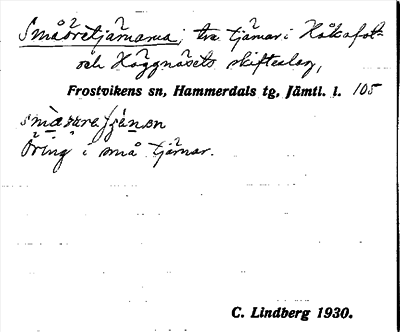 Småöretjärnarna; två tjärnar i Håkafot-
och Häggnäsets skifteslag,
Frostvikens sn, Hammerdals tg, Jämtl. l. 105
Öring i små tjärnar.
C. Lindberg 1930.